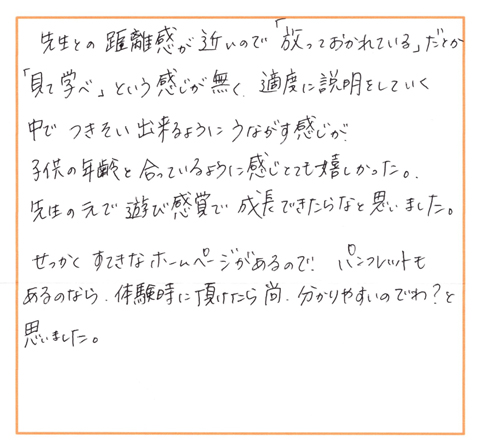 先生との距離感が近いので「放っておかれている」だとか
「見て学べ」という感じが無く、適度に説明をしていく
中でつきそい出来るようにうながす感じが、
子供の年齢と合っているように感じとても嬉しかった。
先生の元で遊び感覚で成長できたらなと思いました。
せっかくすてきなホームページがあるので、パンフレットも
あるのなら、体験時に頂けたら尚、分かりやすいのでわ?と
思いました。